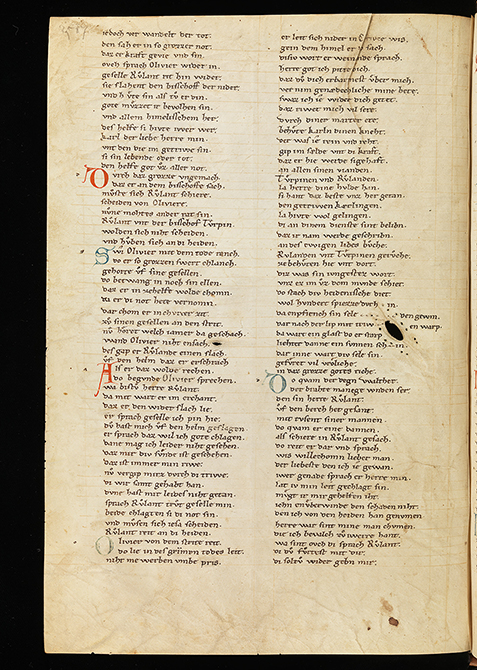 ieboch wi wandelt der tot.
den sah er in so grozzer not.
daz er kraft gevie und sin.
ouch sprach Olivier wider in.
geselle Rvlant rit hin wider.
sie slahent den bisshoff der nider.
und hvte sin als tv er din.
gote mvzzet ir bevolhen sin.
und allem himelisschem her.
des helfe si hivte iwer wer.
karl der liebe herre min.
unt den die im getriwe sin.
si sin lebende oder tot.
den helfe got vz aller not.
Durch daz grozze ungemach.
daz er an dem bisshoffe sach.
mvste sich Rvlant schiere.
scheiden von Oliviere.
nvne mohtes ander rat sin.
Rvlant unt der bisshof Tvrpin.
wolden sich niht scheiden.
und hvben sich an di heiden.
Swi Olivier mit dem tode ranch.
do er so grozzen swert chlanch.
gehorte vf sine gesellen.
do betwang in noch sin ellen.
daz er in zehelfe wolde chomen.
da er di not hete vernomen.
dar chom er in chvrzer zit.
zv sinen gesellen an den strit.
nv horet welch iamer da geschach.
wand Olivier niht ensach.
des gap er Rvlande einen slach.
vf den helm daz er erschrach.
Als er daz wolde rechen.
do begunde Olivier sprechen.
wa bistv herre Rvlant.
da mit wart er im erchant.
daz er den wider slach lie.
er sprach geselle ich pin hie.
dv hast mich vf den helm geslagen.
er sprach daz wil ich gote chlagen.
wane mag ich leider niht gesehen.
daz mir div svnde ist geschehen.
daz ist immer min riwe.
nv vergip mirz durch di triwe.
di wir samt gehabt han.
dvne hast mir leides niht getan.
sprach Rvlant trvt geselle min.
beide chlagten si di not sin.
und mvsen sich iesa scheiden.
Rvlant reit an di heiden.
Olivier von dem strite reit.
do lie in des grimen todes leit.
niht me werben umbe pris.
er leit sich nider in crvce wis.
gein dem himel er vf sach.
disiv wort er weinende sprach.
herre got ich pite dich.
daz dv dich erbarmest vber mich.
wer num genædechliche mine bete.
swaz ich ie wider dich getet.
daz riwet mich vil sere.
durch diner marter ere.
behvte karln dinen kneht.
der was ie rein und reht.
gip im sælde unt di kraft.
daz er hie werde sigehaft.
an allen sinen vianden.
Tvrpinen und Rvlanden.
la herre dine hulde han.
si hant daz beste vnz her getan.
den getriwen Kærlingen.
la hivte wol gelingen.
di an dinem dienste sint beliben.
daz ir nam werde geschriben.
an des ewigen libes bvche.
Rvlanden unt Tvrpinen gervche.
ze behvten hie unt dort.
diz was sin iungestez wort.
unz ez im vz dem munde schiet.
do stach div heidenische diet
wol hundert spiezze dvrch in.
da enpfiench sin sele den gewin.
daz nach der lip mit triwen warp.
da wart ein glast do er starp
liehter danne ein svnnen schin.
dar inne wart div sele sin
gefuret vil vroliche.
in daz grozze gotes riche.
Do quam der degen walther.
der bruhte manegt wnden ser.
den sin herre Rvlant.
vf den berch het gesant.
mit tvsent siner mannen.
do quam er eine dannen.
als schiere in Rvlant gesach.
do reit er dar und sprach.
wis willechomn lieber man.
der liebeste den ich ie gewan.
iwer genade sprach er herre min.
lat iv min leit gechlagt sin.
mvgt ir mir gehelfen iht.
ichn uberwinde den schaden niht.
den ich von den heiden han genumen.
herre war sint mine man chomen.
die ich bevalch zv iwerre hant.
wa sint ovch di sprach Rvlant.
di dv fvrtest mit dir.
di soltv wider gebn mir.